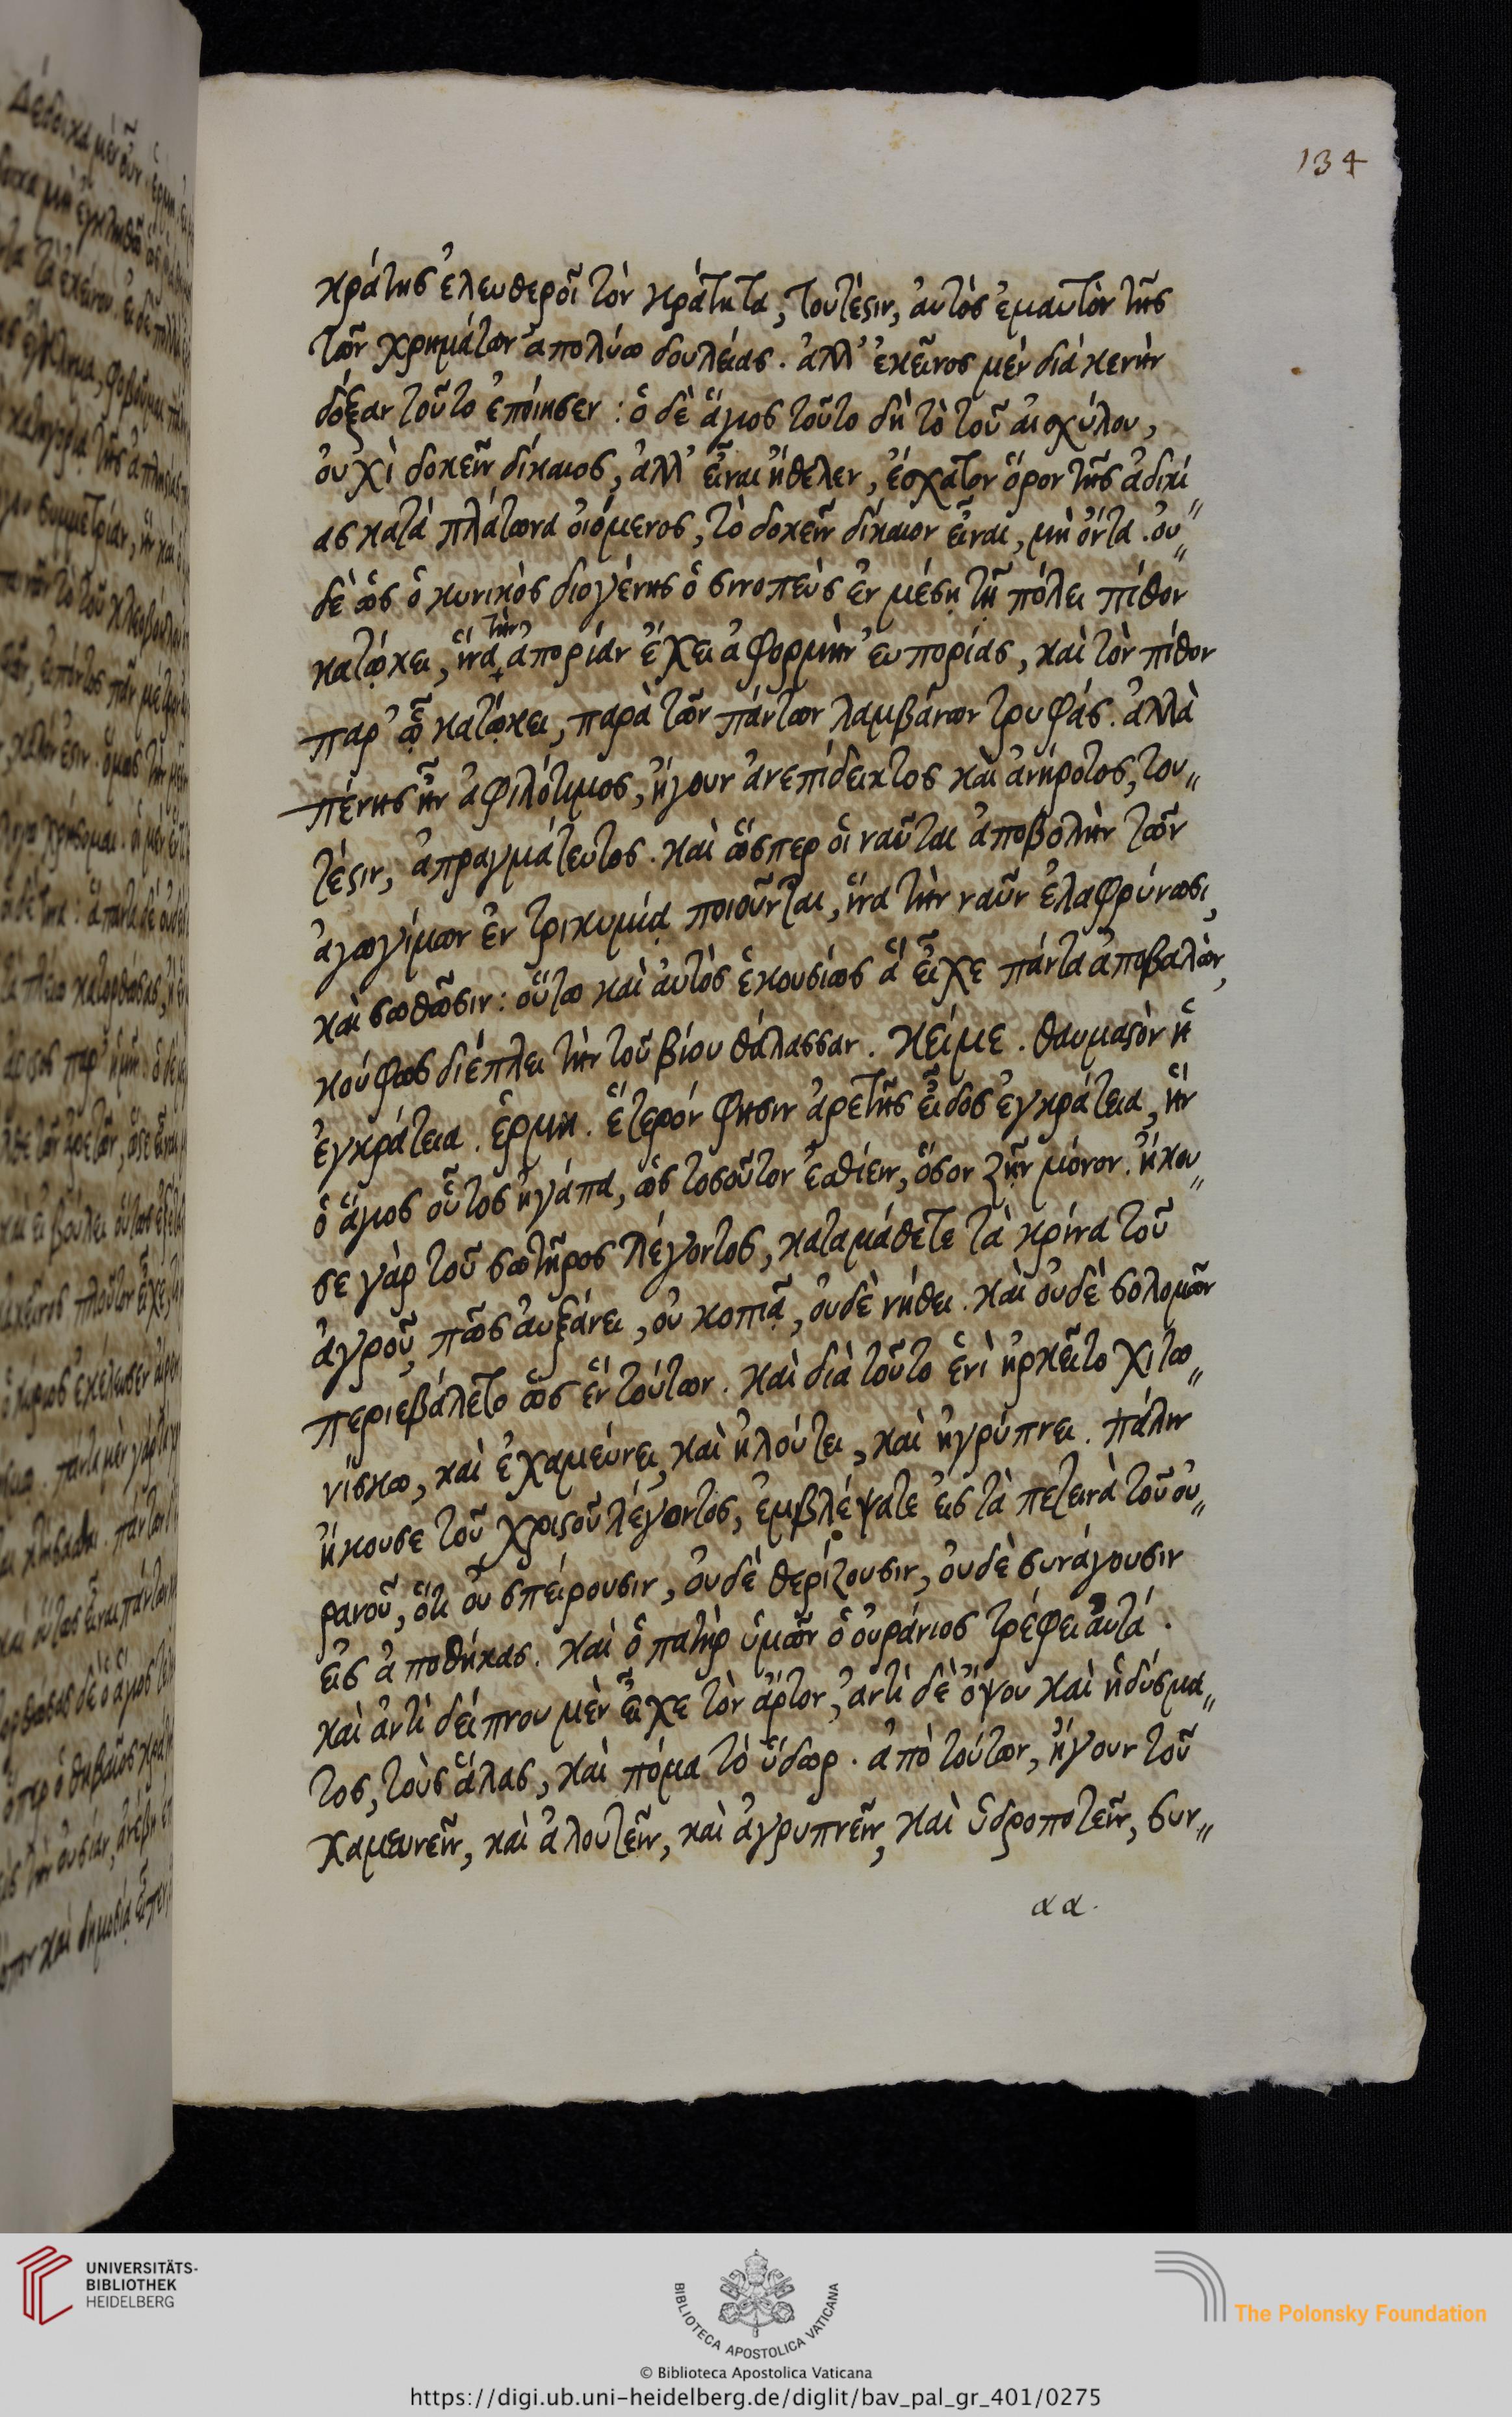 134
κράτης ἐλευθεροῖ τὸν κράτητα, τουτέστιν, αὐτὸς ἐμαυτὸν τῆς
τῶν χρημάτων ἀπολύω δουλείας. ἀλλ' ἐκεῖνος μὲν διὰ κενὴν
δόξαν τοῦτο ἐποίησεν: ὁ δὲ ἅγιος τοῦτο δὴ τὸ τοῦ αἰσχύλου,
οὐχὶ δοκεῖν δίκαιος, ἀλλ' εἶναι ἤθελεν, ἔσχατον ὅρον τῆς ἀδικί„
ας κατὰ πλάτωνα οἰόμενος, τὸ δοκεῖν δίκαιον εἶναι, μὴ ὄντα. οὐ„
δὲ ὡς ὁ κυνικὸς διογένης ὁ σινοπεὺς ἐν μέσῃ τῇ πόλει πίθον
κατῴκει, ἵνα τὴν ἀπορίαν ἔχει ἀφορμὴν εὐπορίας, καὶ τὸν πίθον
παρ' ᾧ κατῴκει, παρὰ τῶν πάντων λαμβάνων τρυφάς. ἀλλὰ
πένης ἦν ἀφιλότιμος, ἤγουν ἀνεπίδεικτος καὶ ἀνήροτος, του„
τέστιν, ἀπραγμάτευτος. καὶ ὥσπερ οἱ ναῦται ἀποβολὴν τῶν
ἀγωγίμων ἐν τρικυμίᾳ ποιοῦνται, ἵνα τὴν ναῦν ἐλαφρύνωσι,
καὶ σωθῶσιν: οὕτω καὶ αὐτὸς ἑκουσίως ἃ εἶχε πάντα ἀποβαλὼν,
κούφως διέπλει τὴν τοῦ βίου θάλασσαν. κείμε. θαυμαστὸν ἡ
ἐγκράτεια. ἑρμη. ἕτερόν φησιν ἀρετῆς εἶδος ἐγκράτεια, ἣν
ὁ ἅγιος οὗτος ἠγάπα, ὡς τοσοῦτον ἐσθίειν, ὅσον ζῆν μόνον. ἤκου„
σε γὰρ τοῦ σωτῆρος λέγοντος, καταμάθετε τὰ κρίνα τοῦ
ἀγροῦ, πῶς αὐξάνει, οὐ κοπιᾷ, οὐδὲ νήθει. καὶ οὐδὲ σολομῶν
περιεβάλετο ὡς ἓν τούτων. καὶ διὰ τοῦτο ἑνὶ ἠρκεῖτο χιτω„
νίσκω, καὶ ἐχαμεύνει, καὶ ἠλούτει, καὶ ἠγρύπνει. πάλιν
ἤκουσε τοῦ χριστοῦ λέγοντος, ἐμβλέψατε εἰς τὰ πετεινὰ τοῦ οὐ„
ρανοῦ, ὅτι οὐ σπείρουσιν, οὐδὲ θερίζουσιν, οὐδὲ συνάγουσιν
εἰς ἀποθήκας. καὶ ὁ πατὴρ ὑμῶν ὁ οὐράνιος τρέφει αὐτά.
καὶ ἀντὶ δείπνου μὲν εἶχε τὸν ἄρτον, ἀντὶ δὲ ὄψου καὶ ἡδύσμα„
τος, τοὺς ἅλας, καὶ πόμα τὸ ὕδωρ. ἀπὸ τούτων, ἤγουν τοῦ
χαμευνεῖν, καὶ ἀλουτεῖν, καὶ ἀγρυπνεῖν, καὶ ὑδροποτεῖν, συν„
αα.
UNIVERSITÄTS-
BIBLIOTHEK
HEIDELBERG
BIBLIOTECA APOSTOLICA VATICANA
The Polonsky Foundation
© Biblioteca Apostolica Vaticana
https://digi.ub.uni-heidelberg.de/diglit/bav_pal_gr_401/0275